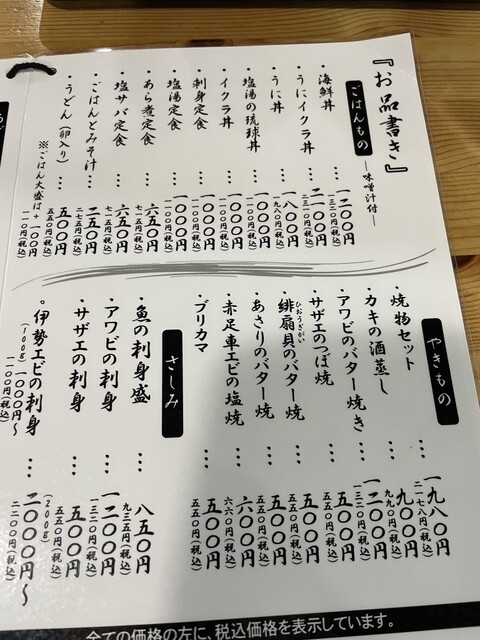 『お品書き』
ごはんもの
―味噌汁付―
・海鮮丼 … 一二〇〇円
一三二〇円(税込)
・うにイクラ丼 … 二一〇〇円
二三一〇円(税込)
・うに丼 … 一八〇〇円
一九八〇円(税込)
・塩湯の琉球丼 … 一〇〇〇円
一一〇〇円(税込)
・イクラ丼 … 一〇〇〇円
一一〇〇円(税込)
・刺身定食 … 一〇〇〇円
一一〇〇円(税込)
・塩湯定食 … 一〇〇〇円
一一〇〇円(税込)
・あら煮定食 … 六五〇円
七一五円(税込)
・塩サバ定食 … 六五〇円
七一五円(税込)
・ごはんとみそ汁 … 二五〇円
二七五円(税込)
・うどん（卵入り） … 五〇〇円
五五〇円(税込)
※ごはん大盛は＋一〇〇円
一一〇円(税込)
やきもの
・焼物セット … 一九八〇円
二一七八円(税込)
・カキの酒蒸し … 九〇〇円
九九〇円(税込)
・アワビのバター焼き … 一二〇〇円
一三二〇円(税込)
・サザエのつぼ焼 … 五〇〇円
五五〇円(税込)
ひおうぎがい
・緋扇貝のバター焼 … 五〇〇円
五五〇円(税込)
・あさりのバター焼 … 五〇〇円
五五〇円(税込)
・赤足車エビの塩焼 … 六〇〇円
六六〇円(税込)
・ブリカマ … 五〇〇円
五五〇円(税込)
さしみ
・魚の刺身盛 … 八五〇円
九三五円(税込)
・アワビの刺身 … 一二〇〇円
一三二〇円(税込)
・サザエの刺身 … 五〇〇円
五五〇円(税込)
・伊勢エビの刺身 …
(100g) 一〇〇〇円〜
一一〇〇円(税込)
(200g) 二〇〇〇円〜
二二〇〇円(税込)
全ての価格の方に、税込価格を表示しています。